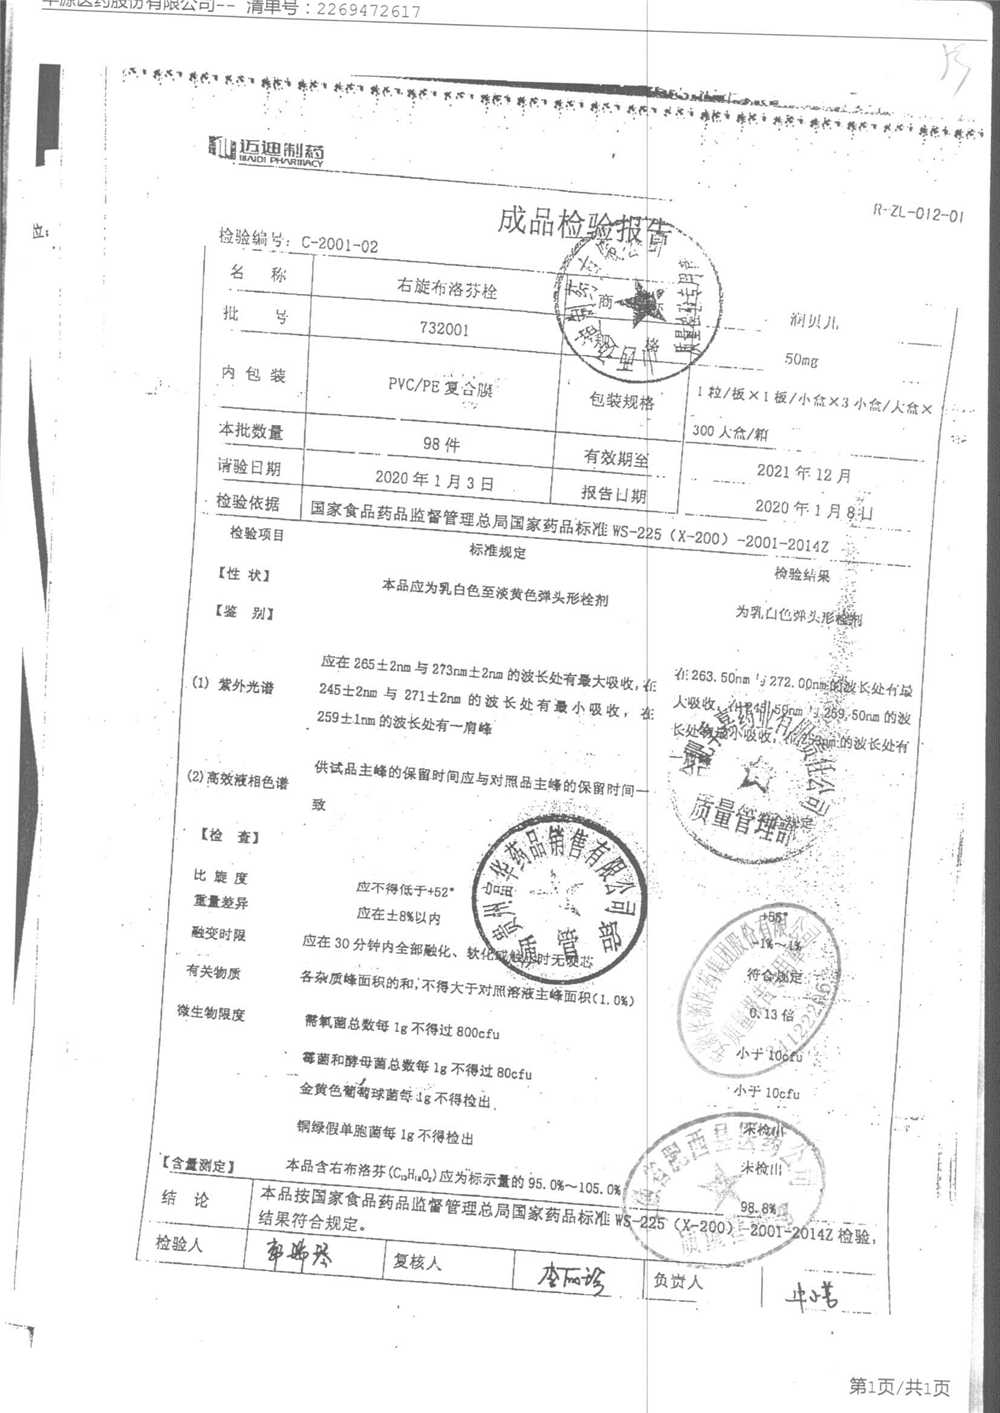 华源医药股份有限公司-- 清单号：2269472617
迈迪制药
MAIDI PHARMACY
R-ZL-012-01
成品检验报告
检验编号：C-2001-02
名 称 右旋布洛芬栓 商 标 润贝儿
批 号 732001 规 格 50mg
内 包 装 PVC/PE 复合膜 包装规格 1 粒/板×1 板/小盒×3 小盒/大盒×
300 大盒/箱
本批数量 98 件 有效期至 2021 年 12 月
请验日期 2020 年 1 月 3 日 报告日期 2020 年 1 月 8 日
检验依据 国家食品药品监督管理总局国家药品标准 WS-225（X-200）-2001-2014Z
检验项目 标准规定 检验结果
【性 状】 本品应为乳白色至淡黄色弹头形栓剂 为乳白色弹头形栓剂
【鉴 别】
(1) 紫外光谱 应在 265±2nm 与 273nm±2nm 的波长处有最大吸收，在
245±2nm 与 271±2nm 的波长处有最小吸收，在
259±1nm 的波长处有一肩峰
在 263.50nm 与 272.00nm 的波长处有最
大吸收，在 245.50nm 与 269.50nm 的波
长处有最小吸收，在 259nm 的波长处有
一肩峰
(2)高效液相色谱 供试品主峰的保留时间应与对照品主峰的保留时间一
致
【检 查】
比 旋 度 应不得低于+52° +55°
重量差异 应在±8%以内 -1%～1%
融变时限 应在 30 分钟内全部融化、软化或触压时无硬芯 符合规定
有关物质 各杂质峰面积的和,不得大于对照溶液主峰面积(1.0%) 0.13 倍
微生物限度 需氧菌总数每 1g 不得过 800cfu 小于 10cfu
霉菌和酵母菌总数每 1g 不得过 80cfu 小于 10cfu
金黄色葡萄球菌每 1g 不得检出 未检出
铜绿假单胞菌每 1g 不得检出 未检出
【含量测定】 本品含右布洛芬(C₁₃H₁₈O₂)应为标示量的 95.0%～105.0% 98.8%
结 论 本品按国家食品药品监督管理总局国家药品标准 WS-225（X-200）-2001-2014Z 检验，
结果符合规定。
检验人 复核人 李丽珍 负责人
贵州富华药品销售有限公司
质管部
质量管理部
第1页/共1页